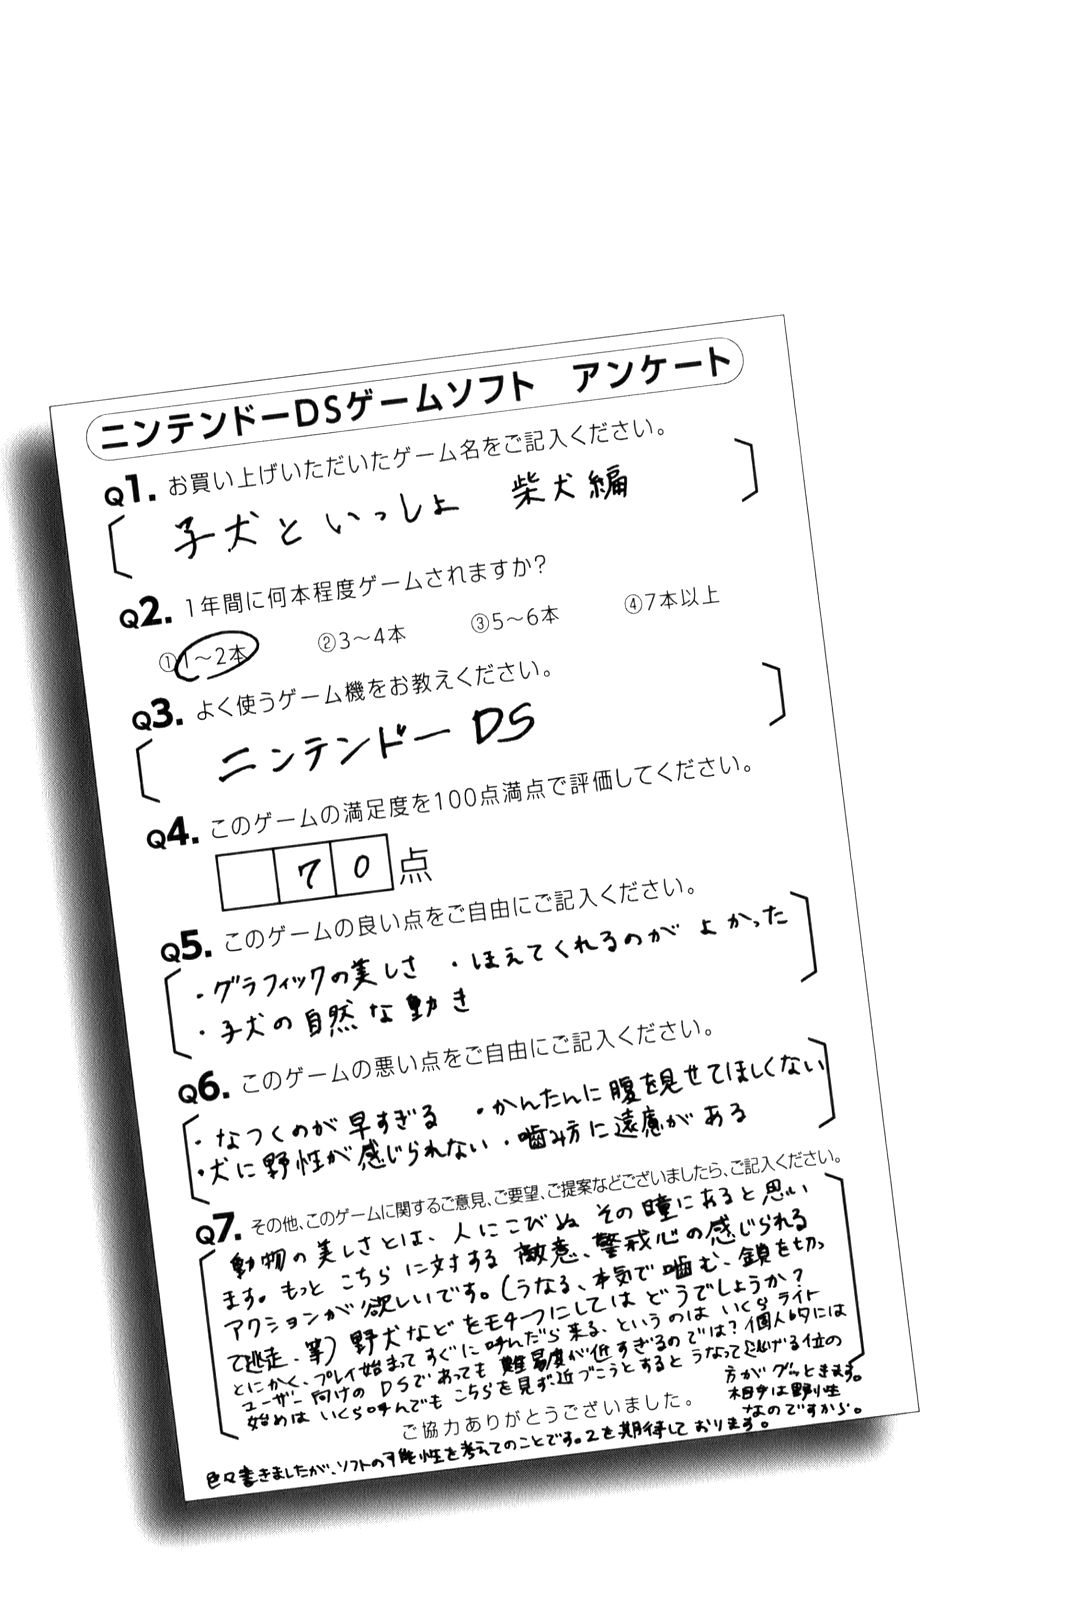 ニンテンドーDSゲームソフト アンケート
Q1. お買い上げいただいたゲーム名をご記入ください。
子犬といっしょ 柴犬編
Q2. 1年間に何本程度ゲームされますか?
①1〜2本 ②3〜4本 ③5〜6本 ④7本以上
Q3. よく使うゲーム機をお教えください。
ニンテンドーDS
Q4. このゲームの満足度を100点満点で評価してください。
70点
Q5. このゲームの良い点をご自由にご記入ください。
・グラフィックの美しさ ・ほえてくれるのがよかった
・子犬の自然な動き
Q6. このゲームの悪い点をご自由にご記入ください。
・なつくのが早すぎる ・かんたんに腹を見せてほしくない
・犬に野性が感じられない ・噛み方に遠慮がある
Q7. その他、このゲームに関するご意見、ご要望、ご提案などございましたら、ご記入ください。
動物の美しさとは、人にこびぬ その瞳にあると思い
ます。もっと こちらに対する 敵意、警戒心の感じられる
アクションが欲しいです。(うなる、本気で噛む、鎖を切っ
て逃走、等) 野犬などをモチーフにしてはどうでしょうか?
とにかく、プレイ始まってすぐに呼んだら来る、というのは いくらライト
ユーザー向けのDSであっても 難易度が低すぎるのでは?個人的には
始めは いくら呼んでも こちらを見ず、近づこうとすると うなって逃げる位の
方がグッときます。
相手は野性
なのですから。
ご協力ありがとうございました。
色々書きましたが、ソフトの可能性を考えてのことです。2を期待しております。